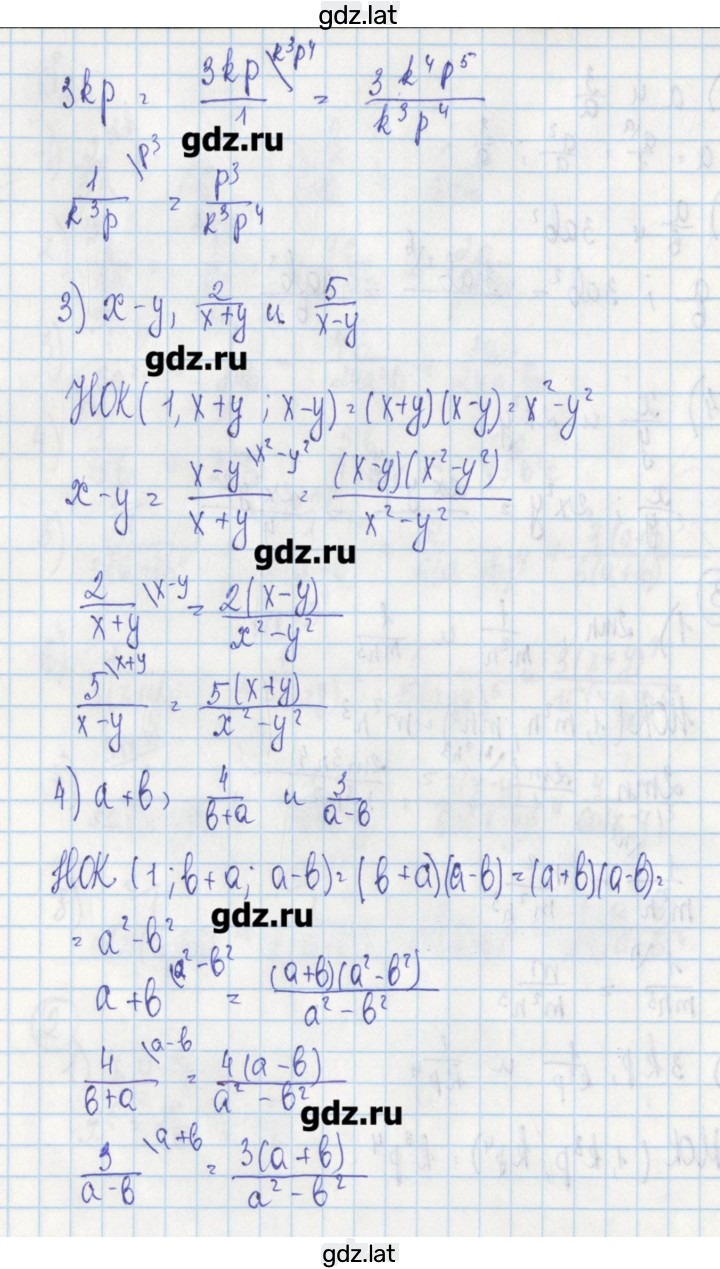 gdz.lat
3kp = 3kp/1 \k³p⁴ = 3k⁴p⁵/k³p⁴
gdz.ru
1/k³p \p³ = p³/k³p⁴
3) x-y, 2/x+y и 5/x-y
gdz.ru
НОК(1, x+y ; x-y) = (x+y)(x-y) = x²-y²
x-y = x-y/x+y \x²-y² = (x-y)(x²-y²)/x²-y²
gdz.ru
2/x+y \x-y = 2(x-y)/x²-y²
5/x-y \x+y = 5(x+y)/x²-y²
4) a+b, 4/b+a и 3/a-b
НОК (1; b+a; a-b) = (b+a)(a-b) = (a+b)(a-b) =
gdz.ru
= a²-b²
a+b \a²-b² = (a+b)(a²-b²)/a²-b²
4/b+a \a-b = 4(a-b)/a²-b²
gdz.ru
3/a-b \a+b = 3(a+b)/a²-b²
gdz.lat